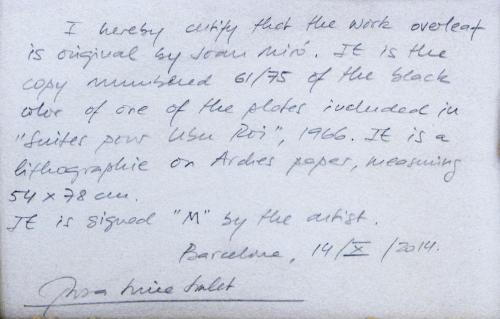 I hereby certify that the work overleaf
is original by Joan Miró. It is the
copy numbered 61/75 of the black
color of one of the plates included in
"Suites pour Ubu Roi", 1966. It is a
lithographie on Arches paper, measuring
54 x 78 cm.
It is signed "M" by the artist.
Barcelona, 14/X/2014.
Rosa Maria Malet